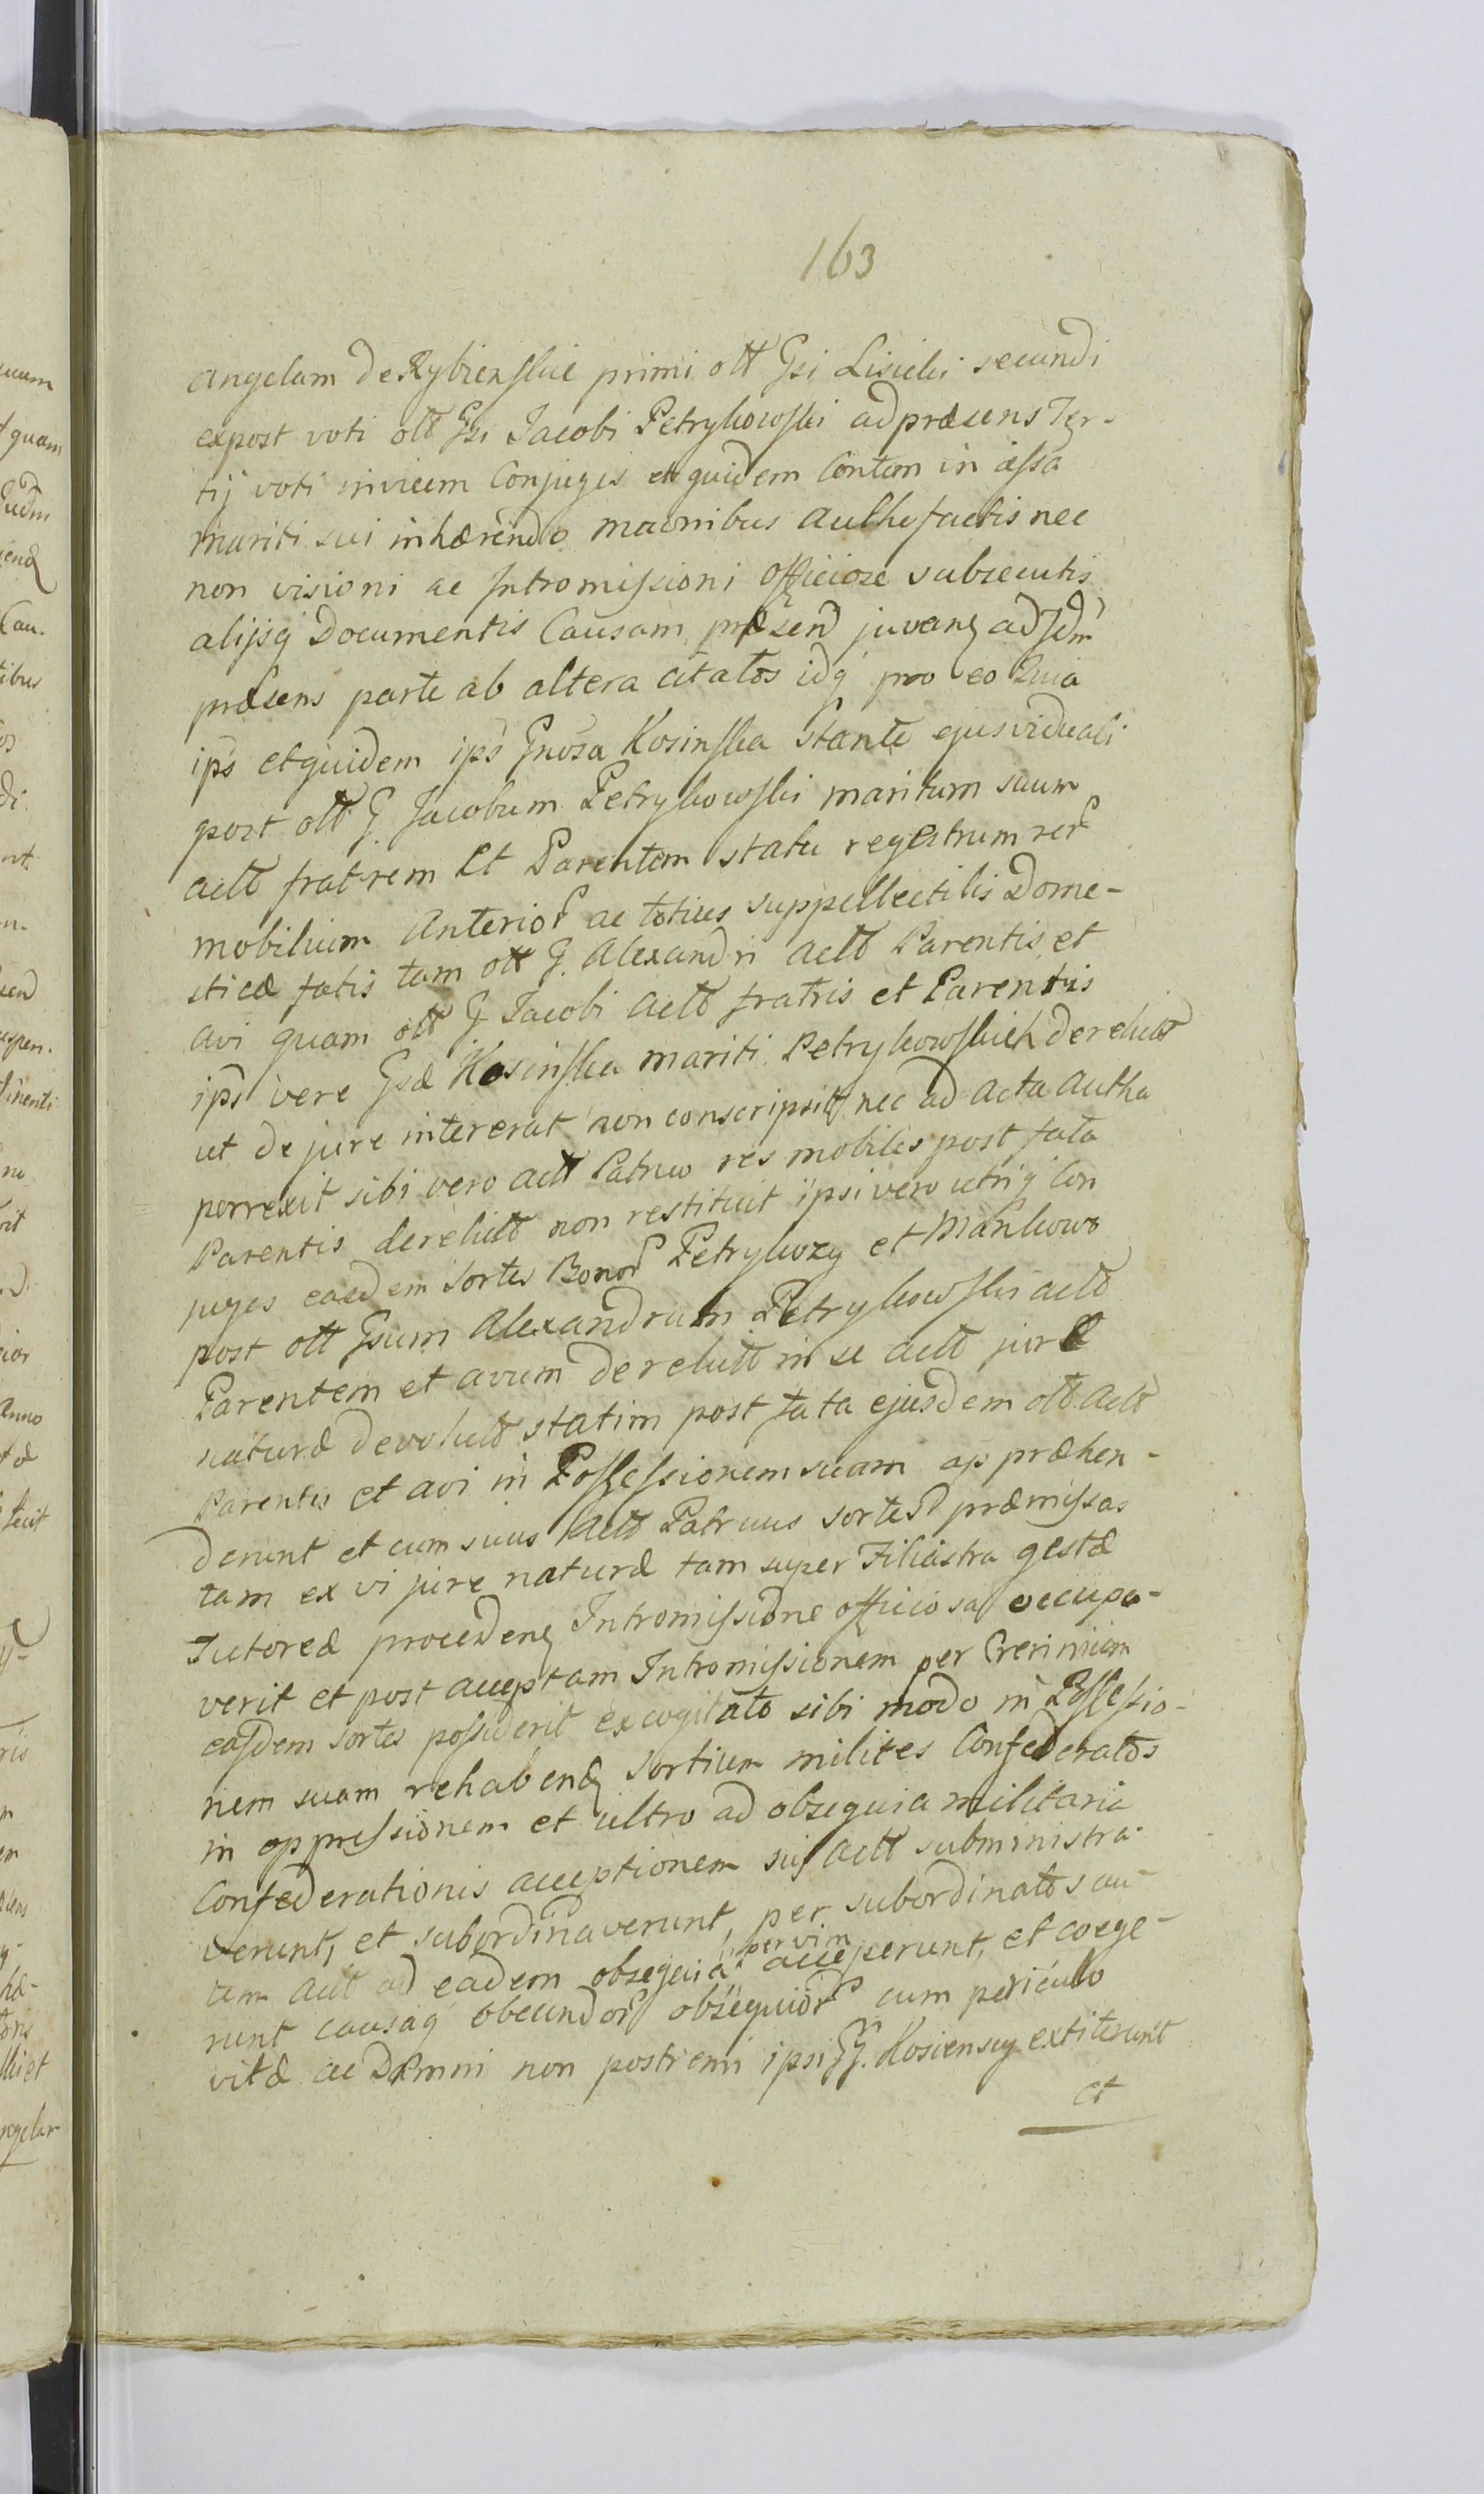 163
Angelam de Rybienskie primi olt Gsi Lisicki secundi
expost voti olt Gsi Jacobi Petrykowski ad præsens Ter-
tij voti invicem Conjuges et quidem Contem in assa
mariti sui inhærendo maonibus authefactis nec
non visioni ac Intromissioni officiose subsecutis
alijsq Documentis Causam præsend juvanq ad Jdm
præsens parte ab altera citatos idq pro eo Quia
ips et quidem ips Gnosa Kosinska Stante ejus viduali
post olt G. Jacobum Petrykowski maritum suum
actt fratrem Et Parentem statu regestrum rer
mobilium Anterior ac totius suppellectilis Dome-
sticæ fatis tam olt G. Alexandri actt Parentis et
avi quam olt G Jacobi actt fratris et Parentis
ips vere Gsæ Kosinska mariti Petrykowskich derelict
ut de jure intererat non conscripsit nec ad acta Autha
porrexit sibi vero actt Patruo res mobiles post fata
Parentis derelict non restituit ipsi vero utriq Con
juges eaedem sortes Bonor Petrykozy et Mankowo
post olt Gsum Alexandrum Petrykowski actt
Parentem et avum derelict in se actt jure
naturæ devolutt statim post fata ejusdem olt actt
Parentis et avi in Possessionem suam appræhen-
derunt et cum suus actt Patruus sortes præmissas
tam ex vi jure naturæ tam super Filiastra gestæ
Tutoreæ procedenq Intromissione officiosa occupa-
verit et post acceptam Intromissionem per
easdem sortes possiderit excogitato sibi modo in Possessio-
nem suam rehabenq sortium milites Confederatos
in oppressionem et ultro ad obsequia militaria
Confederationis acceptionem sui actt subministra-
verunt, et subordinaverunt, per subordinatos au-
tem actt ad eadem obsequia per vim acceperunt, et coege-
runt causaq obeundor obsequior cum periculo
vitæ ac Damni non postremi ipsi GG. Kosienscy extiterunt
et